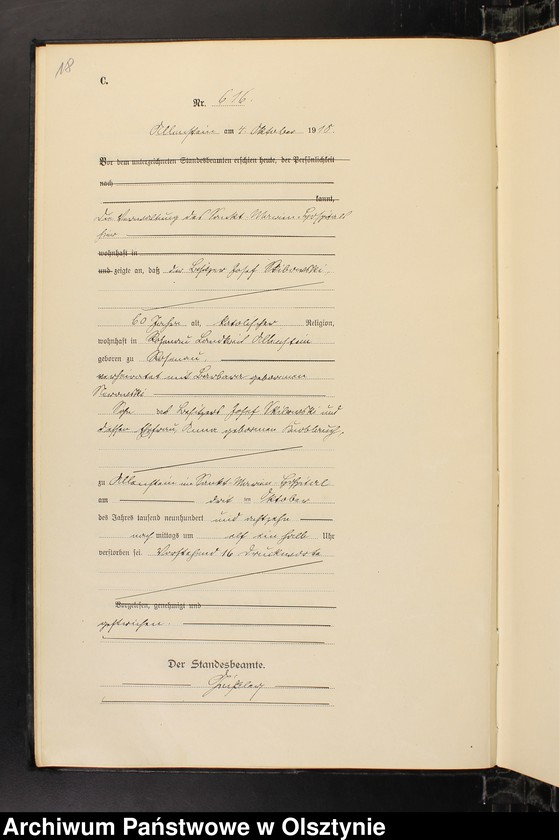 18
C.
Nr. 616.
Allenstein am 4. Oktober 1918.
Vor dem unterzeichneten Standesbeamten erschien heute, der Persönlichkeit
nach
kannt,
Die Verwaltung des Sankt-Marien-Hospitals
hier
wohnhaft in
und zeigte an, daß der Besitzer Josef
60 Jahre alt, katolischer Religion,
wohnhaft in Rosenau Landkreis Allenstein
geboren zu Rosenau,
verheiratet mit Barbara geborenen
Sohn des Besitzers Josef und
dessen Ehefrau Anna geborenen Knoblauch,
zu Allenstein im Sankt-Marien-Hospital
am drei ten Oktober
des Jahres tausend neunhundert und achtzehn
nach mittags um elf ein halb Uhr
verstorben sei. Vorstehend 16 Druckworte
Vorgelesen, genehmigt und
gestrichen.
Der Standesbeamte.
Archiwum Państwowe w Olsztynie